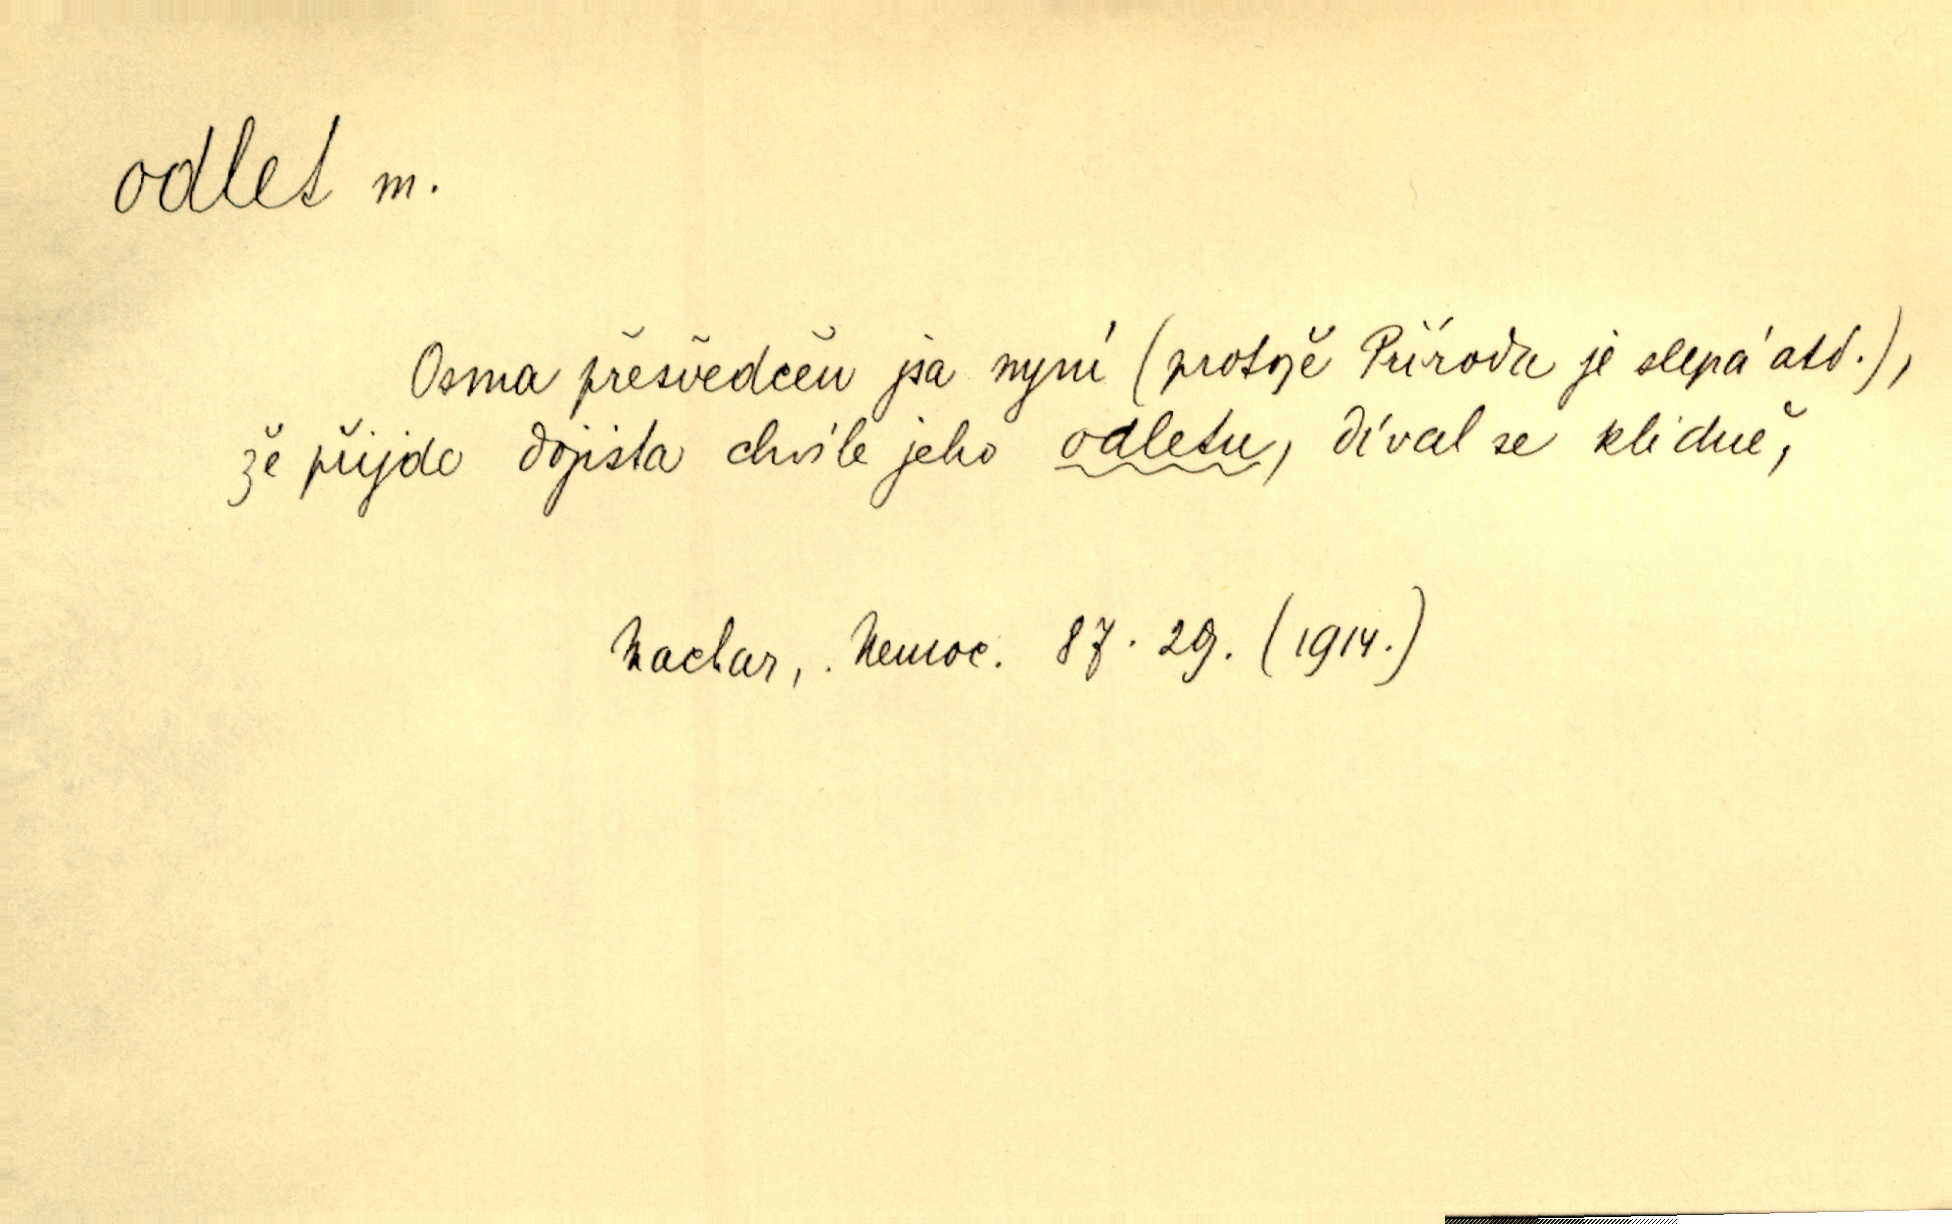 odlet m.
Osma přesvědčen jsa nyní (protože Příroda je slepá atd.),
že přijde dojista chvíle jeho odletu, díval se klidně,
Machar, Nemoc. 87. 29. (1914.)